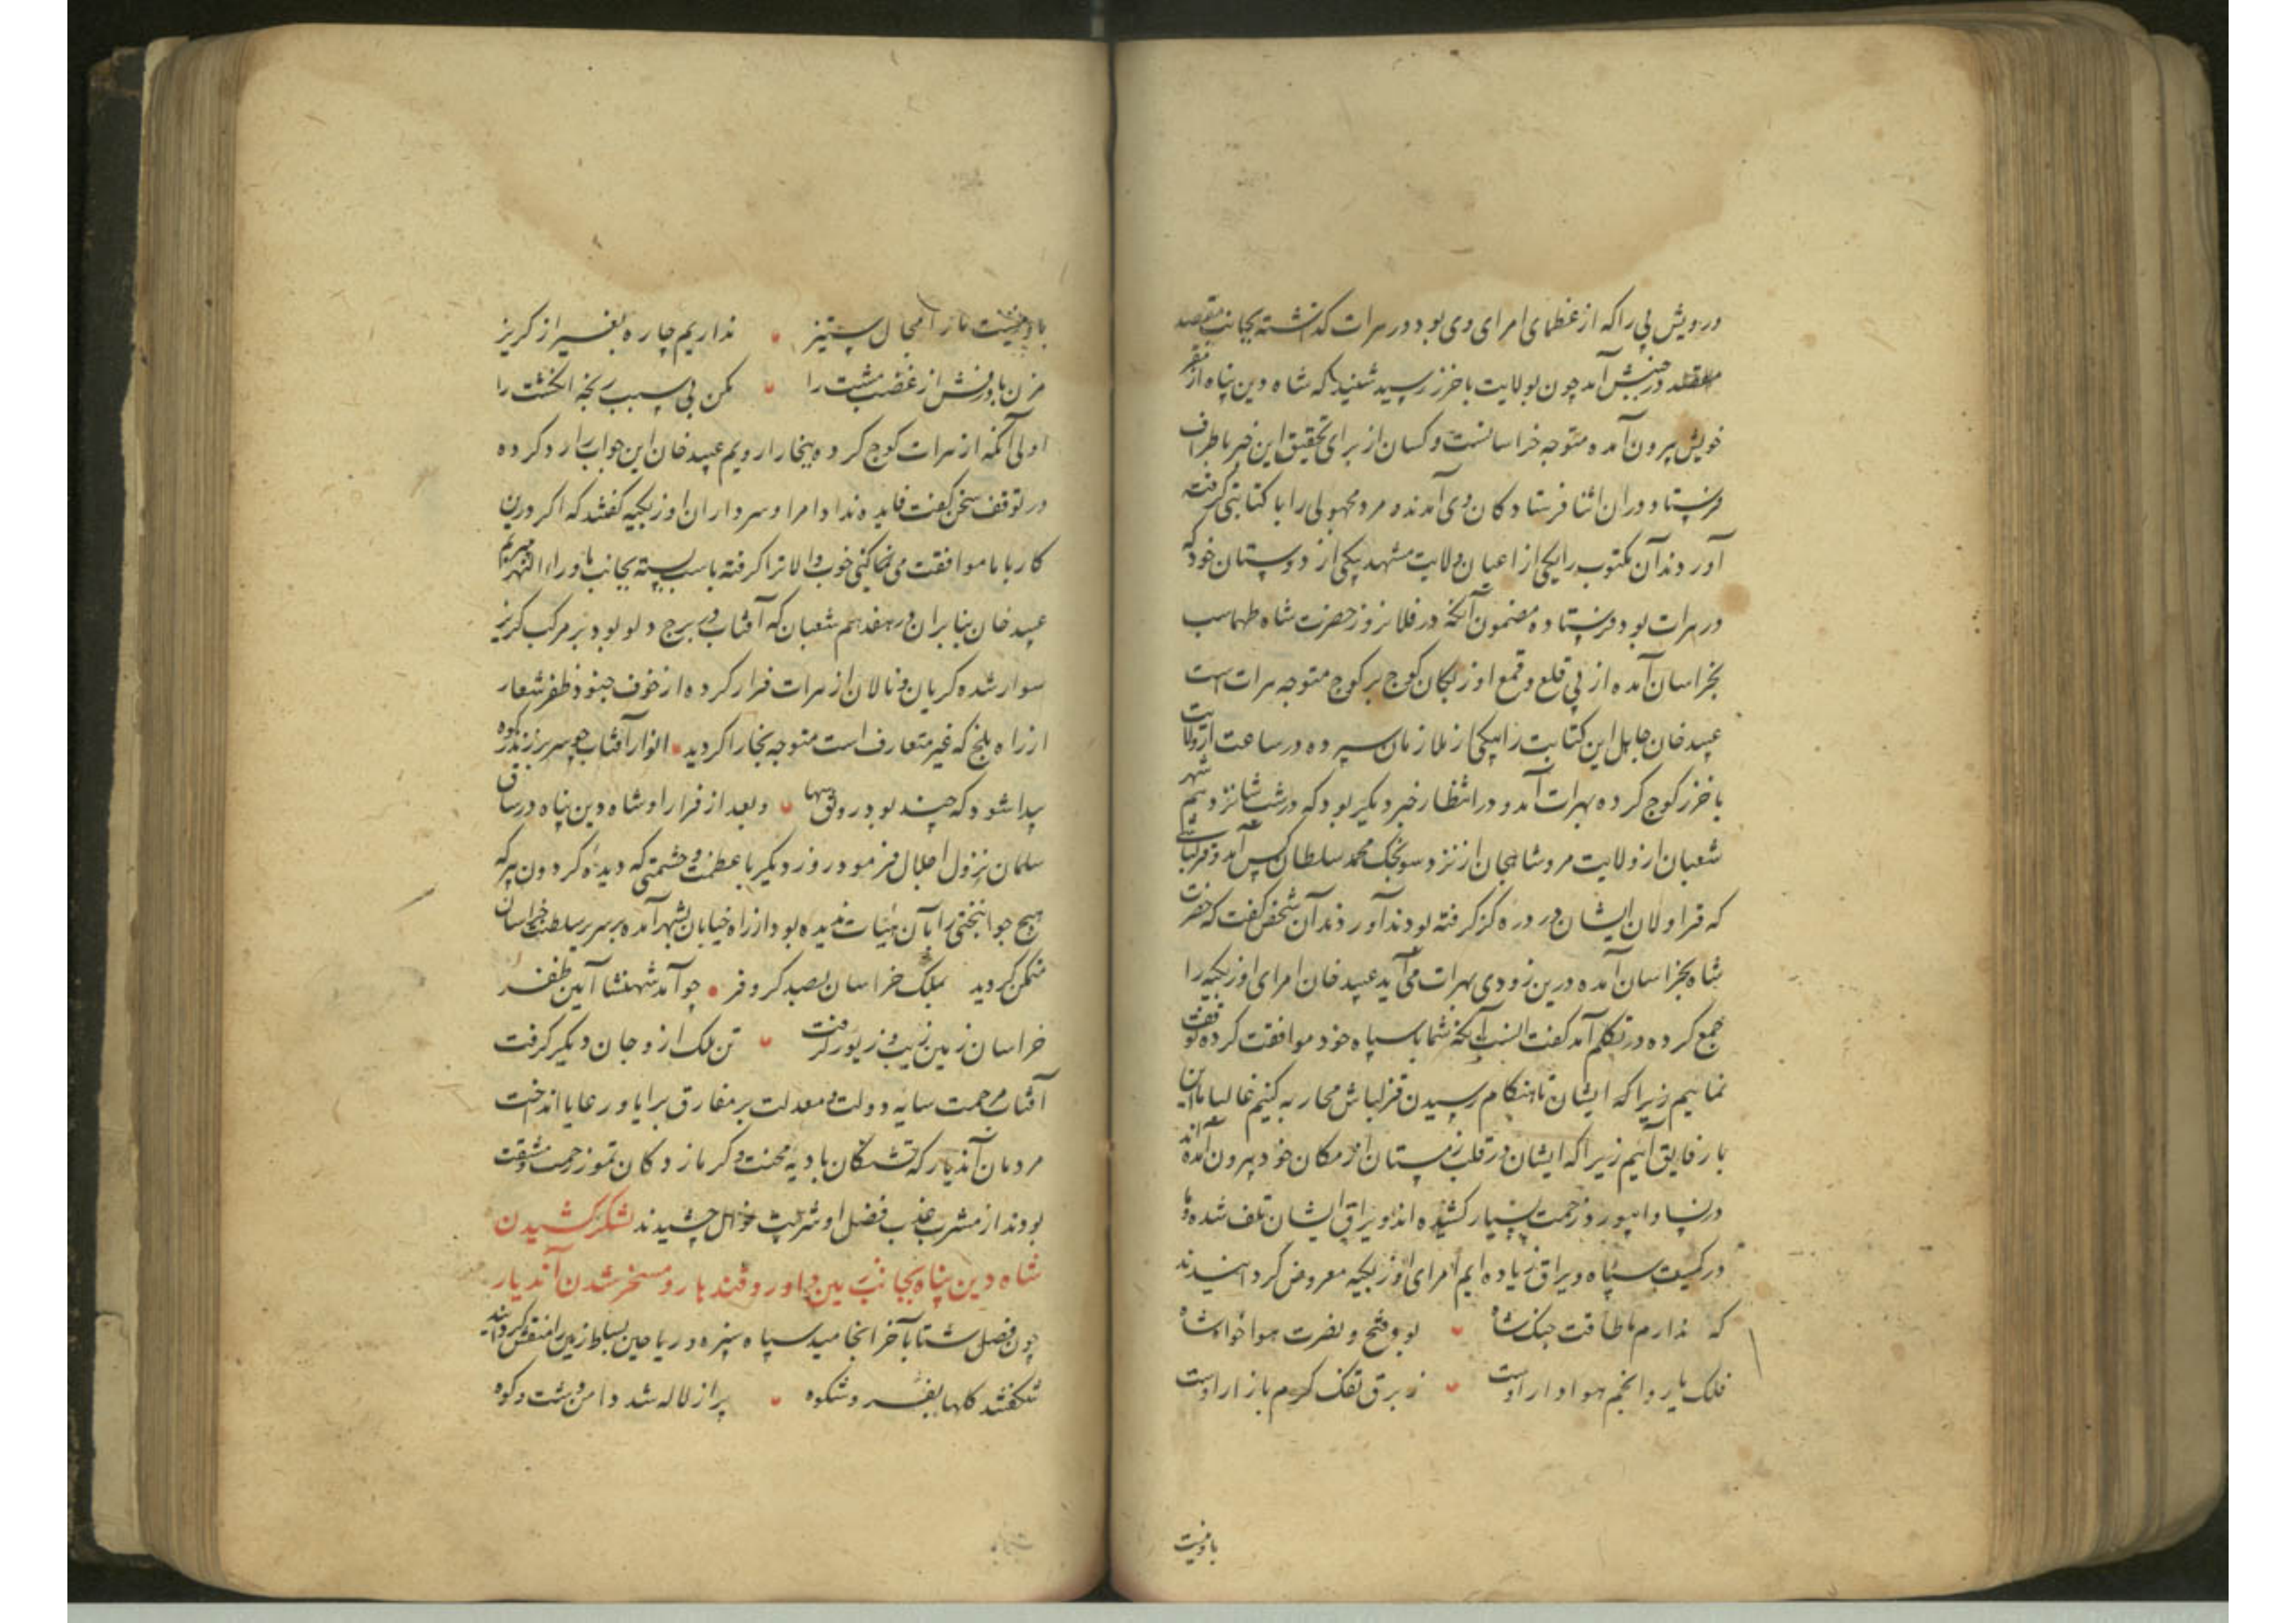 درویش بی را که از عظمای امرای وی بود در هرات کذاشته بجانب مقصد
در جنبش آمد چون بولایت باخرز رسید شنید که شاه دین پناه از مقر
خویش بیرون آمده متوجه خراسانست و کسان از برای تحقیق این خبر باطراف
فرستاد و در ان اثنا فرستادکان وی آمدند و مرد مجهولی را با کتابتی کرفته
آوردند آن مکتوب را یکی از اعیان ولایت مشهد بیکی از دوستان خود که
در هرات بود فرستاده مضمون آنکه در فلان روز حضرت شاه طهماسب
بخراسان آمده از پی قلع و قمع اوزبکان کوچ بر کوچ متوجه هرات است
عبید خان حامل این کتابت را بیکی از ملازمان سپرده در ساعت از ولایت
باخرز کوچ کرده بهرات آمد و در انتظار خبر دیکر بود که در شب شانزدهم شهر
شعبان از ولایت مرو شاهجان از نزد سونجک محمد سلطان کس آمد و قزلباشی
که قراولان ایشان در دره کز کرفته بودند آوردند آن شخص کفت که حضرت
شاه بخراسان آمده درین زودی بهرات می آید عبید خان امرای اوزبکیه را
جمع کرده در تکلم آمد کفت انسب آنکه شما با سپاه خود موافقت کرده توقف
نماییم زیرا که ایشان تا هنکام رسیدن قزلباش محاربه کنیم غالبا ما این
بار فایق آییم زیرا که ایشان در قلب زمستان از مکان خود بیرون آمده اند
در نسا و ابیورد زحمت بسیار کشیده اند و یراق ایشان تلف شده و ما
در کمیت سپاه و یراق زیاده ایم امرای اوزبکیه معروض کردانیدند
که نداریم ما طاقت جنک شاه بود فتح و نصرت هواخواه شاه
فلک یار و انجم هوادار اوست ز برق تفک کرم بازار اوست
باو نیست
باو نیست ما را مجال ستیز نداریم چاره بغیر از کریز
مزن با درفش از غضب مشت را مکن بی سبب رنجه انکشت را
اولی آنکه از هرات کوچ کرده ببخارا رویم عبید خان این جواب را رد کرده
در توقف سخن کفت فایده نداد امرا و سرداران اوزبکیه کفتند که اکر درین
کار با ما موافقت می نماکنی خوب و الا ترا کرفته باسب بسته بجانب ماوراءالنهر میبریم
عبید خان بنابران در هفدهم شعبان که آفتاب در برج دلو بود بر مرکب کریز
سوار شده کریان و نالان از هرات فرار کرده از خوف جنود ظفر شعار
از راه بلخ که غیر متعارف است متوجه بخارا کردید انوار آفتاب چو سر بر زند ز کوه
پیدا شود که چند بود رونق سها و بعد از فرار او شاه دین پناه در ساق
سلمان نزول اجلال فرمود روز دیکر با عظمت و حشمتی که دیده کردون پیر که
هیچ جوانبختی را بآن هیئات ندیده بود از راه خیابان بشهر آمده بر سریر سلطنت خراسان
متمکن کردید بملک خراسان بصد کر و فر چو آمد شهنشاه آیین ظفر
خراسان زمین زیب و زیور کرفت تن ملک ازو جان دیکر کرفت
آفتاب مرحمت سایه دولت و معدلت بر مفارق برایا و رعایا انداخت
مردمان آندیار که تشنکان بادیه محنت و کرمازدکان تموز زحمت و مشقت
بودند از مشرب عذب فضل او شربت خوش چشیدند لشکر کشیدن
شاه دین پناه بجانب زمین داور و قندهار و مسخر شدن آندیار
چون فصل شتا بآخر انجامید سپاه سبزه و ریاحین بساط زمین را منقش کردانید
شکفتند کلها بفر و شکوه پر از لاله شد دامن دشت و کوه